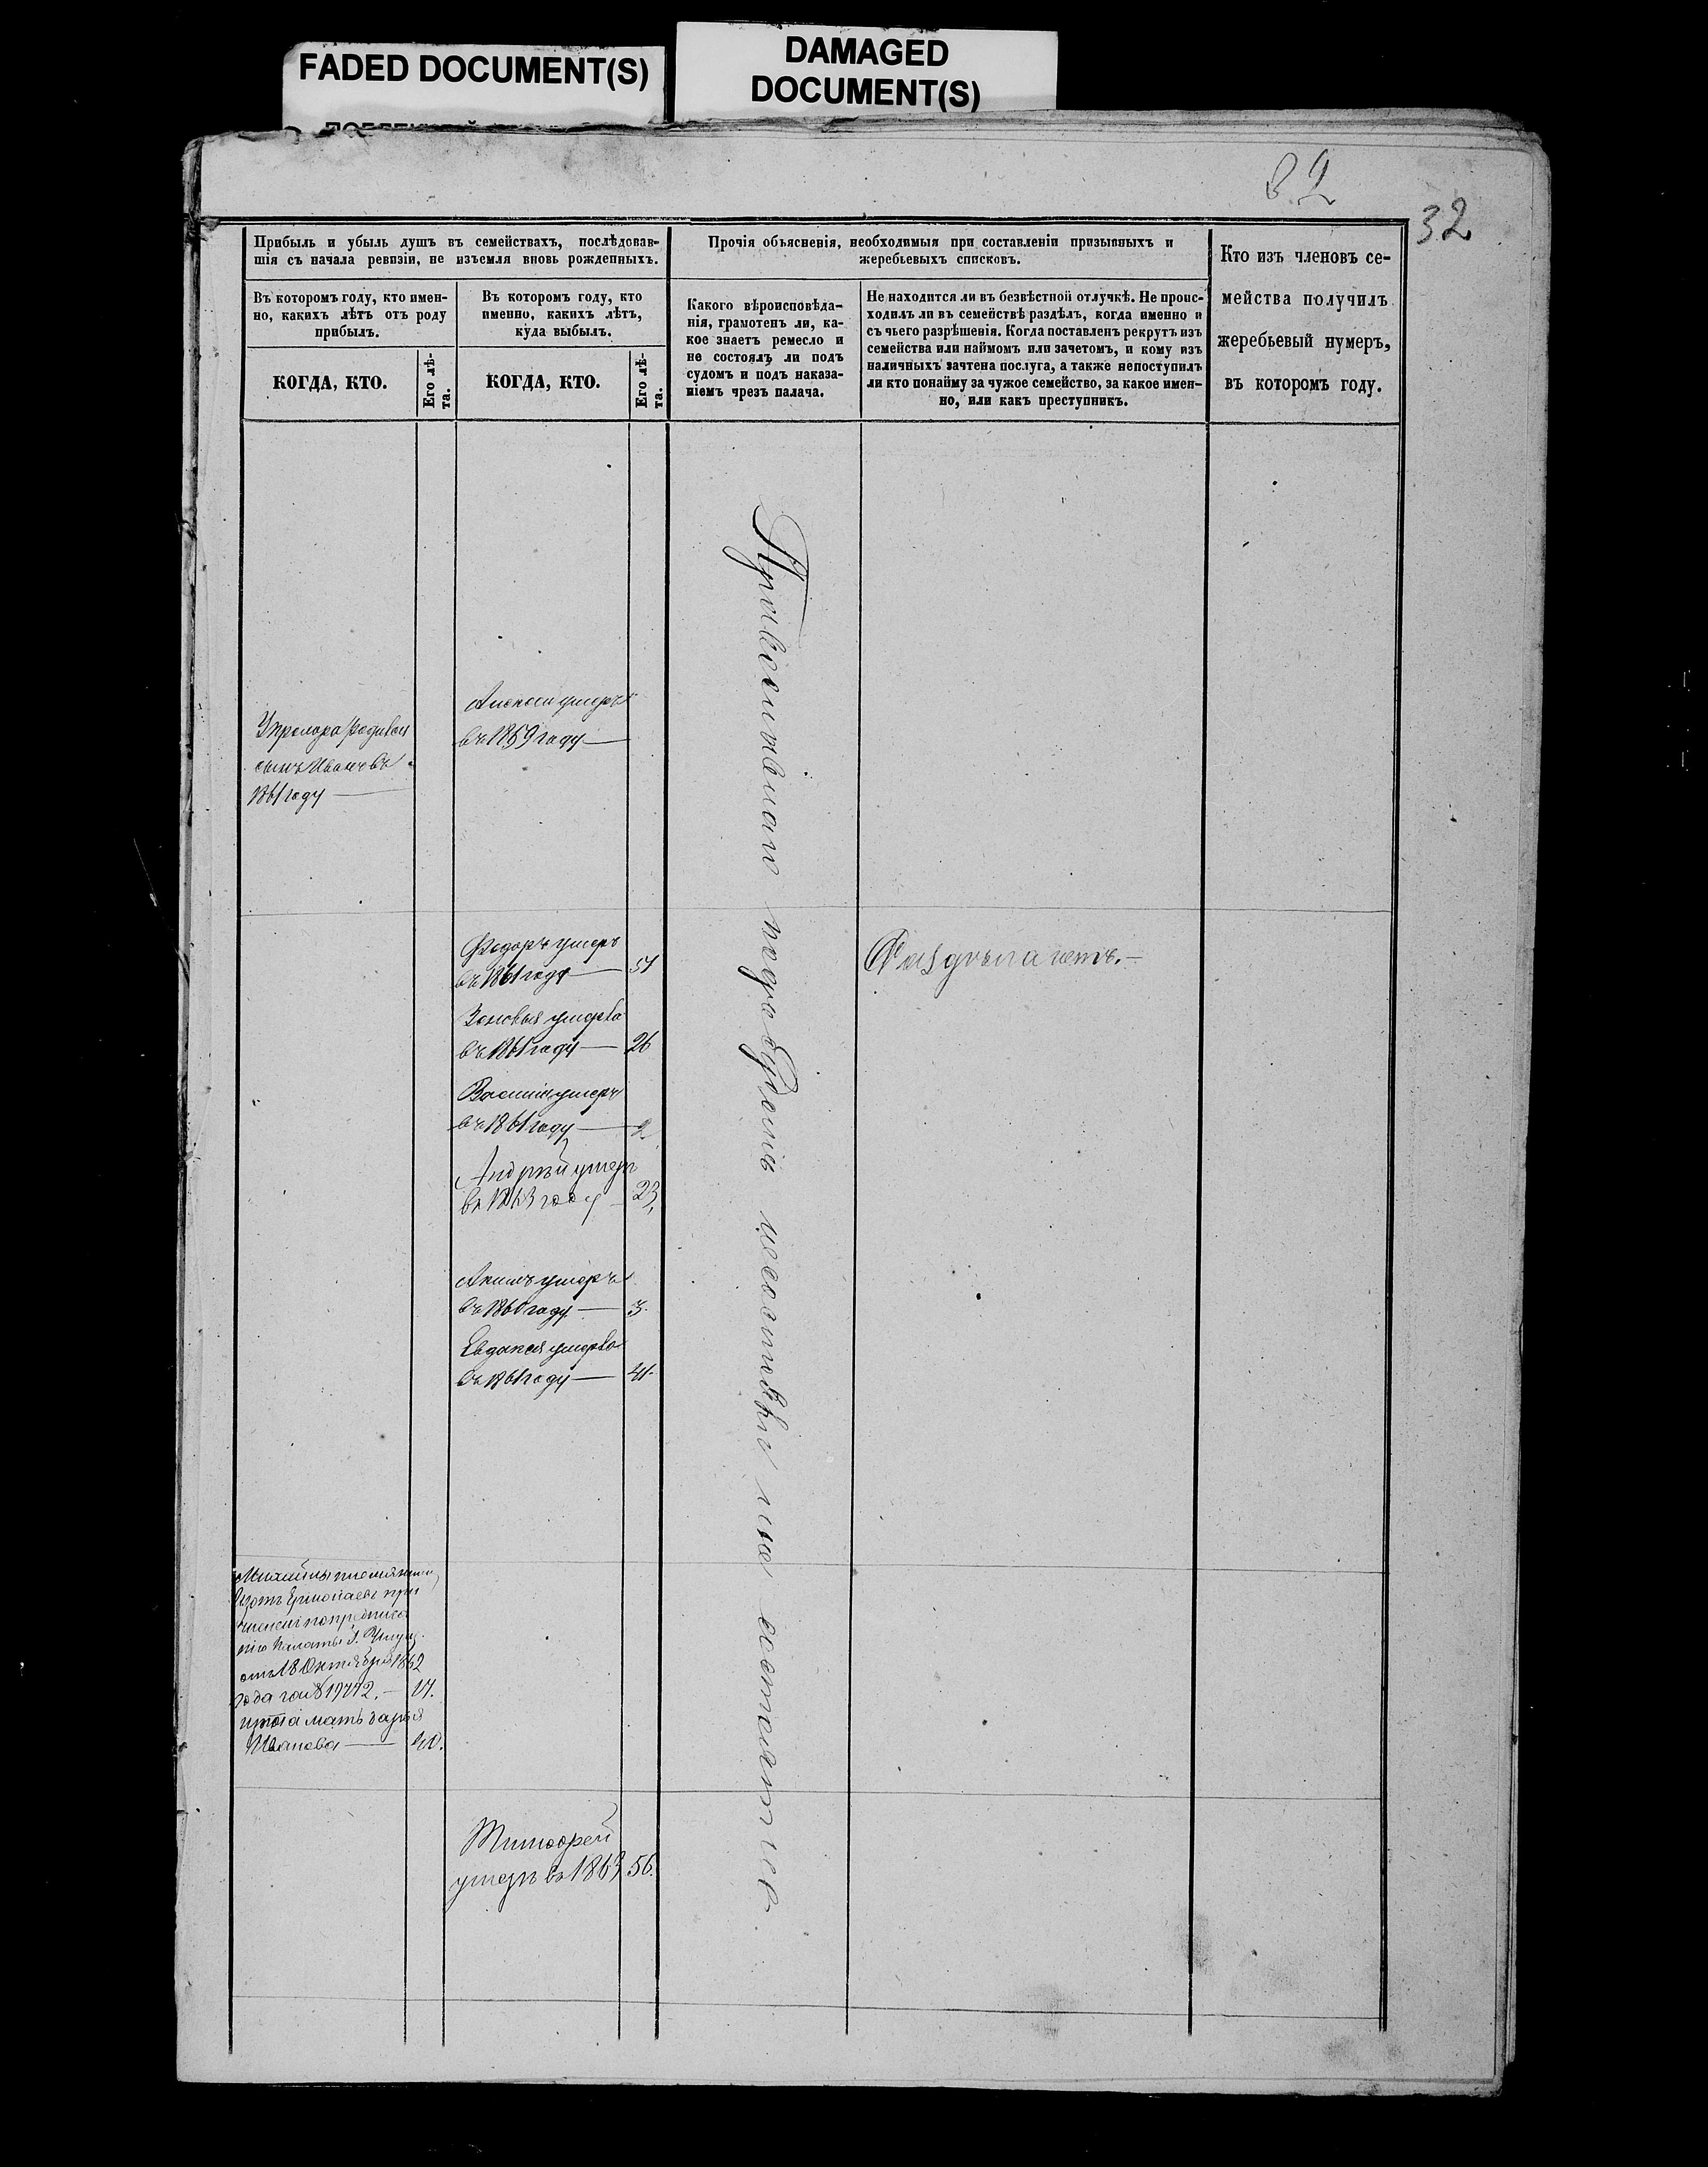 FADED DOCUMENT(S)
DAMAGED
DOCUMENT(S)
82
32
Прибыль и убыль душъ въ семействахъ, послѣдовав-
шія съ начала ревизіи, не изъемля вновь рожденныхъ.
Въ которомъ году, кто имен-
но, какихъ лѣтъ отъ роду
прибылъ.
КОГДА, КТО.
Его лѣ-
та.
Въ которомъ году, кто
именно, какихъ лѣтъ,
куда выбылъ.
КОГДА, КТО.
Его лѣ-
та.
Прочія объясненія, необходимыя при составленіи призывныхъ и
жеребьевыхъ списковъ.
Какого вѣроисповѣда-
нія, грамотенъ ли, ка-
кое знаетъ ремесло и
не состоялъ ли подъ
судомъ и подъ наказа-
ніемъ чрезъ палача.
Не находится ли въ безвѣстной отлучкѣ. Не проис-
ходилъ ли въ семействѣ раздѣлъ, когда именно и
съ чьего разрѣшенія. Когда поставленъ рекрутъ изъ
семейства или наймомъ или зачетомъ, и кому изъ
наличныхъ зачтена послуга, а также непоступилъ
ли кто понайму за чужое семейство, за какое имен-
но, или какъ преступникъ.
Кто изъ членовъ се-
мейства получилъ
жеребьевый нумеръ,
въ которомъ году.
сынъ Иванъ въ
1861 году
умеръ
въ 1859 году
Федоръ умеръ
въ 1861 году 51
Зеновья умерла
въ 1861 году 26
Василій умеръ
въ 1861 году 2
Андрѣй умеръ
въ 1863 году 23.
Акимъ умеръ
въ 1860 году 3.
Евдокея умерла
въ 1861 году 41.
отъ 18 Октября 1862
года за № 19772. 17.
мать Дарья
Иванова 40.
Тимофей
умеръ въ 1863 56.
Православнаго подъ судомъ несостояли и не состоятъ
Раздѣла нетъ.